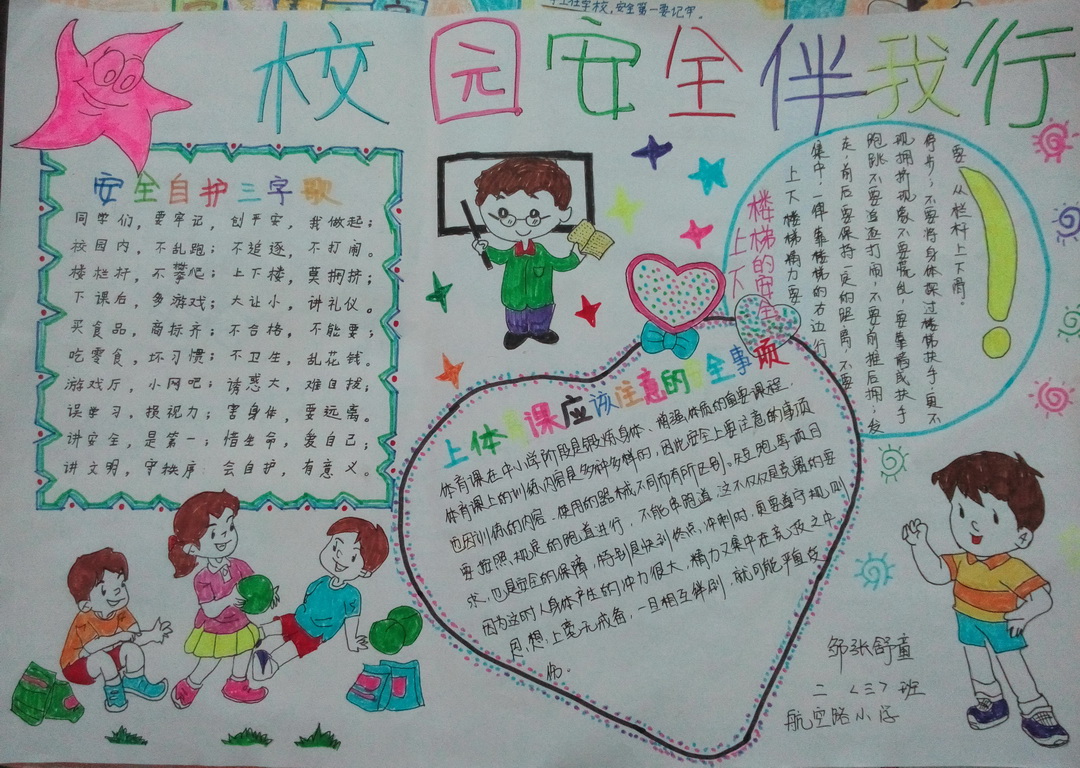 学校，安全第一要记牢。
校园安全伴我行
安全自护三字歌
同学们，要牢记，创平安，我做起；
校园内，不乱跑；不追逐，不打闹。
楼栏杆，不攀爬；上下楼，莫拥挤；
下课后，多游戏；大让小，讲礼仪。
买食品，商标齐；不合格，不能要；
吃零食，坏习惯；不卫生，乱花钱。
游戏厅，小网吧；诱惑大，难自拔；
误学习，损视力；害身体，要远离。
讲安全，是第一；惜生命，爱自己；
讲文明，守秩序 会自护，有意义。
上下
楼梯的安全
上下楼梯精力要
集中，一律靠楼梯的右边行
走，前后要保持一定的距离，不要
跑跳不要追逐打闹，不要前推后拥；发
现拥挤现象不要慌乱，要靠墙或扶手
停步；不要将身体探过楼梯扶手，更不
要从栏杆上下滑。
上体 课应该注意的 全事项
体育课在中小学阶段是锻炼身体、增强体质的重要课程。
体育课上的训练内容是多种多样的，因此安全上要注意的事项
也因训练的内容、使用的器械不同而有所区别。短跑等项目
要按照规定的跑道进行，不能串跑道。这不仅仅是竞赛的要
求，也是安全的保障，特别是快到终点冲刺时，更要遵守规则
因为这时人身体产生的冲力很大，精力又集中在竞技之中
思想上毫无戒备，一旦相互绊倒，就可能严重受
伤。
邹张舒童
二〈三〉班
航空路小学